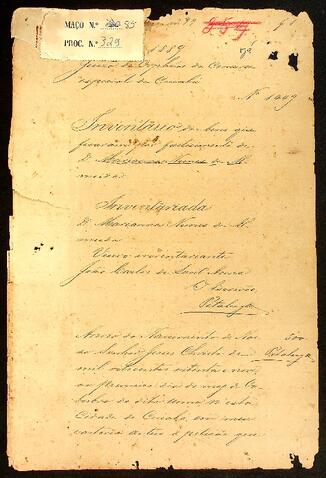 MAÇO N.º 95
PROC. N.º 329
1889
Juizo de Orphãos da Comarca
especial de Cuiabá
Nº 1449
Inventario dos bens que
ficarão por fallecimento de
D. Marianna Nunes de Al-
meida
Inventariada
D. Marianna Nunes de Al-
meida
Viuvo inventariante
João Carlos de Sant'Anna
O Escrivão
Pitaluga
Anno do Nascimento de Nos-
so Senhor Jesus Christo de
mil oitocentos oitenta e nove,
ao primeiro dia do mez de
do dito anno, n'esta
Cidade de Cuiabá, em meu
cartorio autoei a petição que
Pitaluga